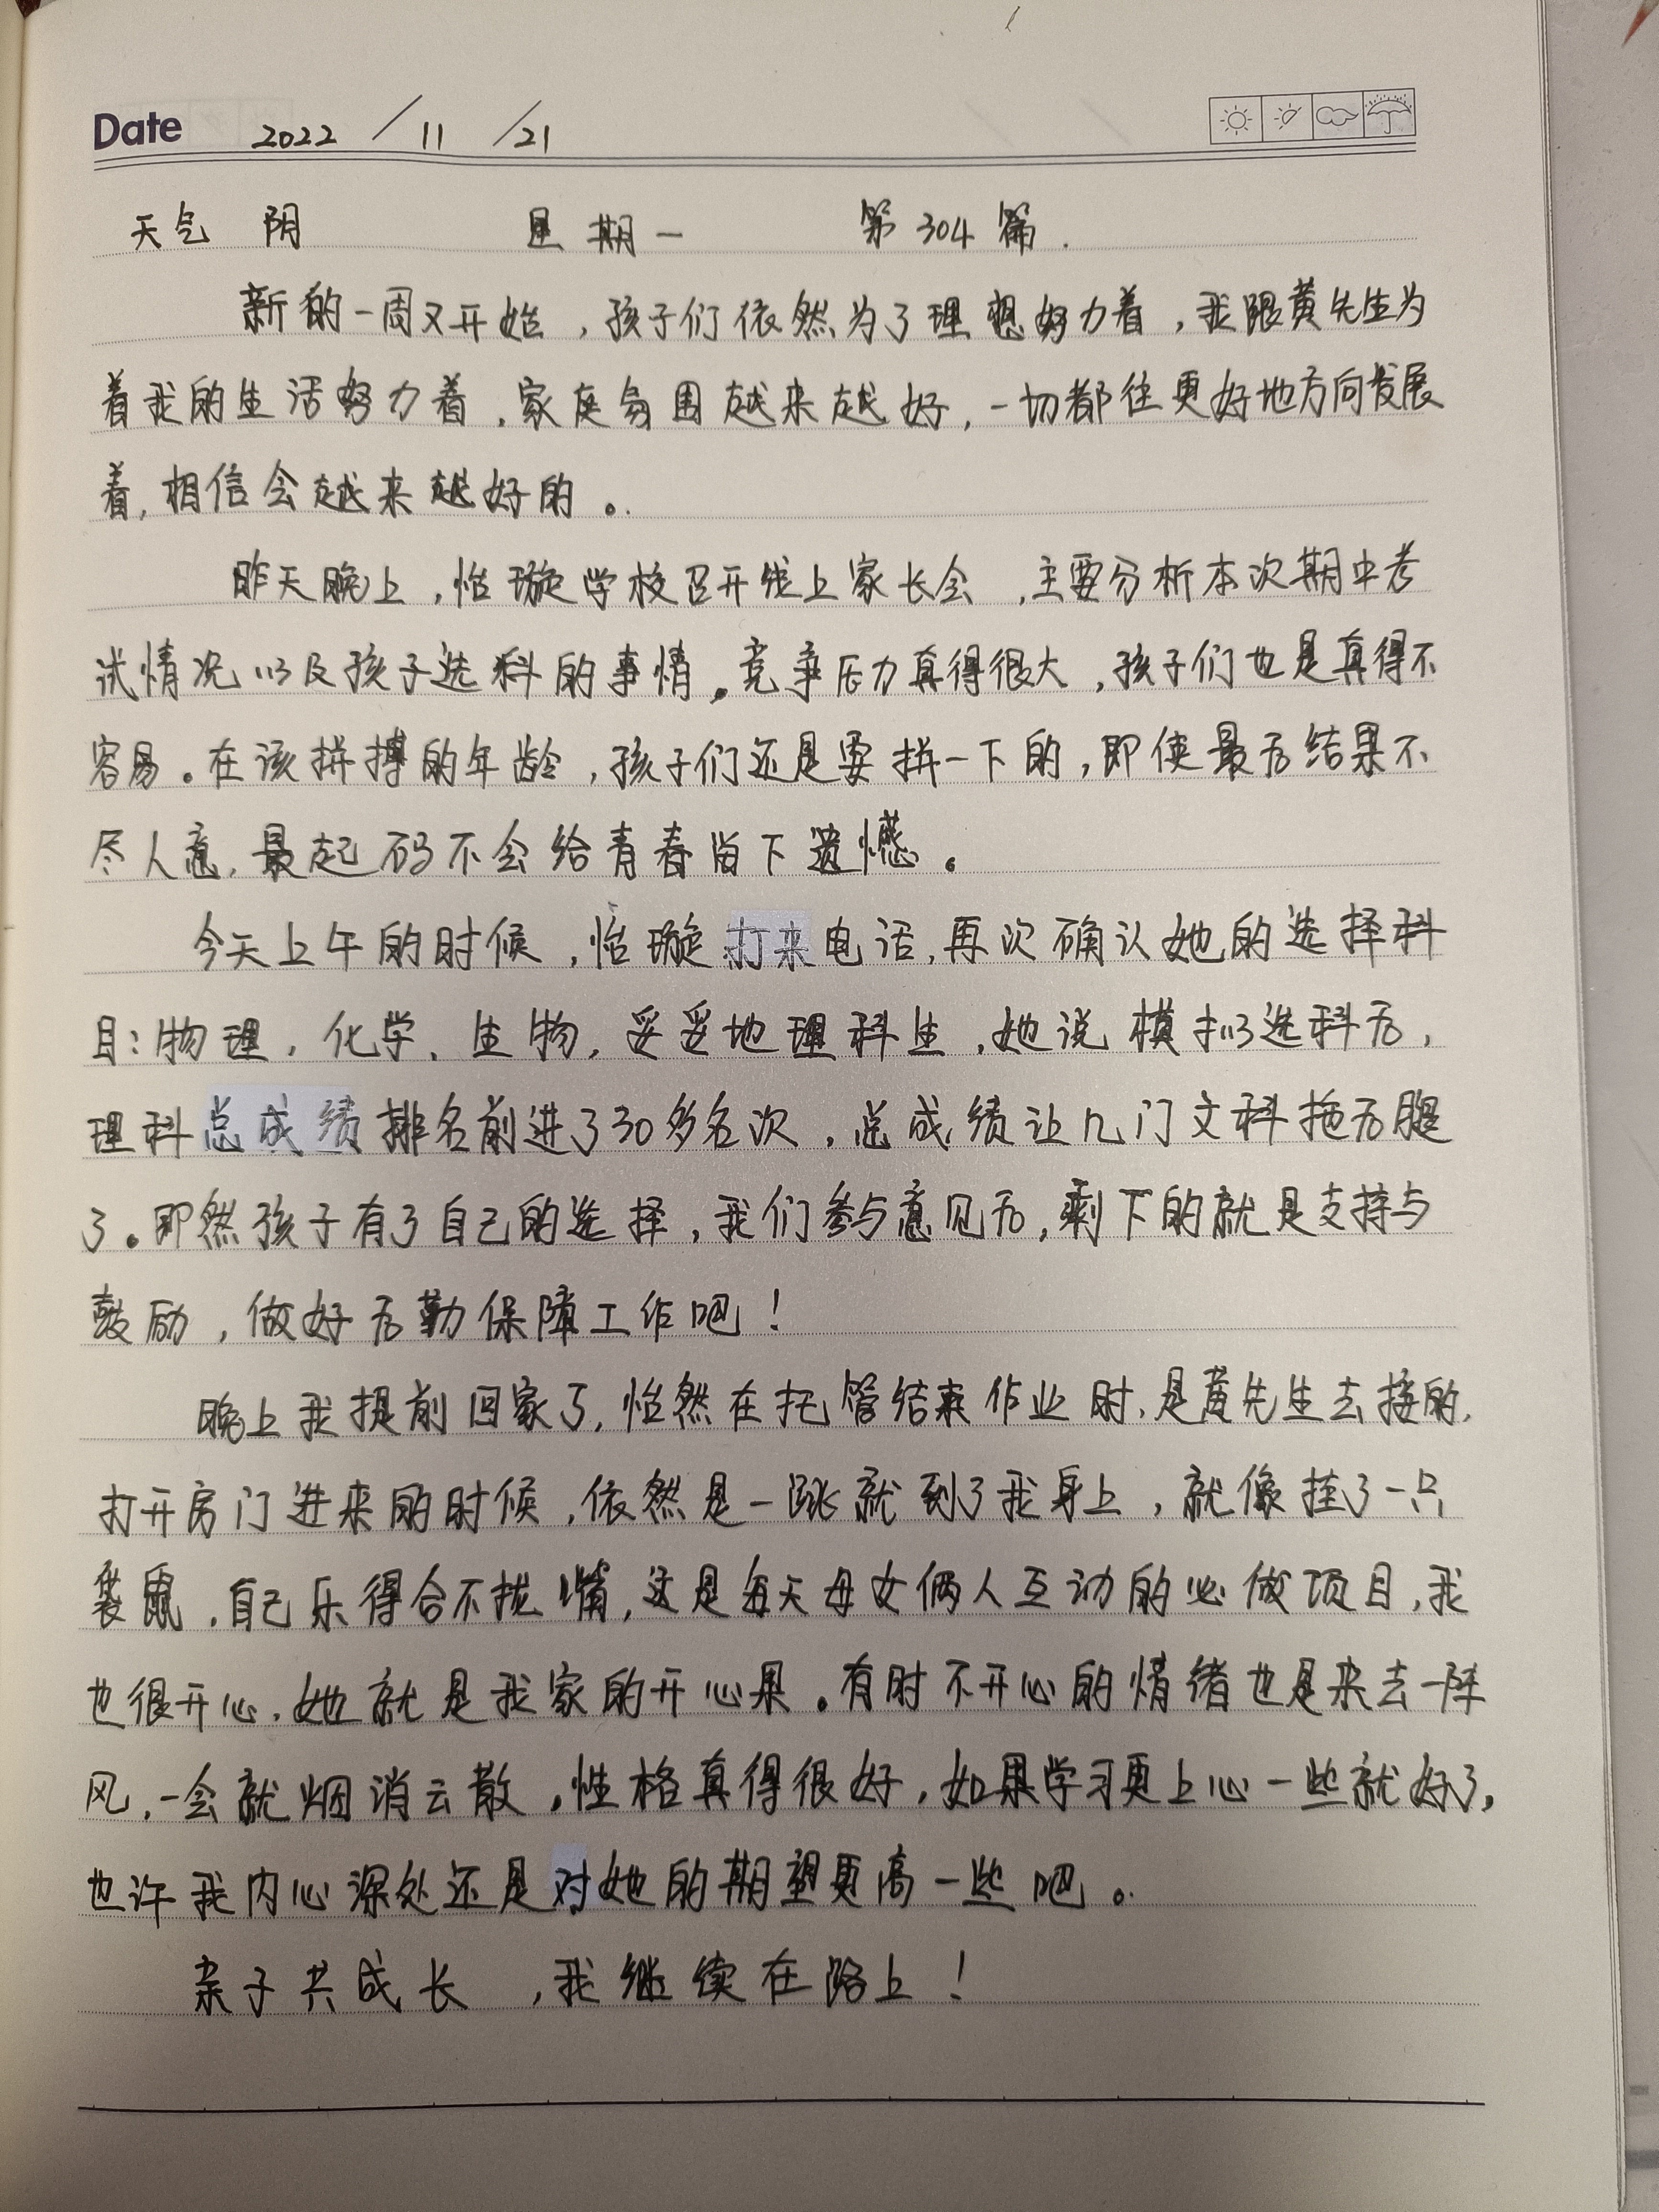 Date 2022 / 11 / 21
天气 阴 星期一 第304篇.
新的一周又开始，孩子们依然为了理想努力着，我跟黄先生为
着我的生活努力着，家庭氛围越来越好，一切都往更好地方向发展
着，相信会越来越好的。
昨天晚上，怡璇学校召开线上家长会，主要分析本次期中考
试情况以及孩子选科的事情。竞争压力真得很大，孩子们也是真得不
容易。在该拼搏的年龄，孩子们还是要拼一下的，即使最后结果不
尽人意，最起码不会给青春留下遗憾。
今天上午的时候，怡璇打来电话，再次确认她的选择科
目：物理，化学、生物，妥妥地理科生，她说模拟选科后，
理科总成绩排名前进了30多名次，总成绩让几门文科拖后腿
了。即然孩子有了自己的选择，我们参与意见后，剩下的就是支持与
鼓励，做好后勤保障工作吧！
晚上我提前回家了，怡然在托管结束作业时，是黄先生去接的，
打开房门进来的时候，依然是一跳就到了我身上，就像挂了一只
袋鼠，自己乐得合不拢嘴，这是每天母女俩人互动的必做项目，我
也很开心，她就是我家的开心果。有时不开心的情绪也是来去一阵
风，一会就烟消云散，性格真得很好，如果学习更上心一些就好了，
也许我内心深处还是对她的期望更高一些吧。
亲子共成长，我继续在路上！